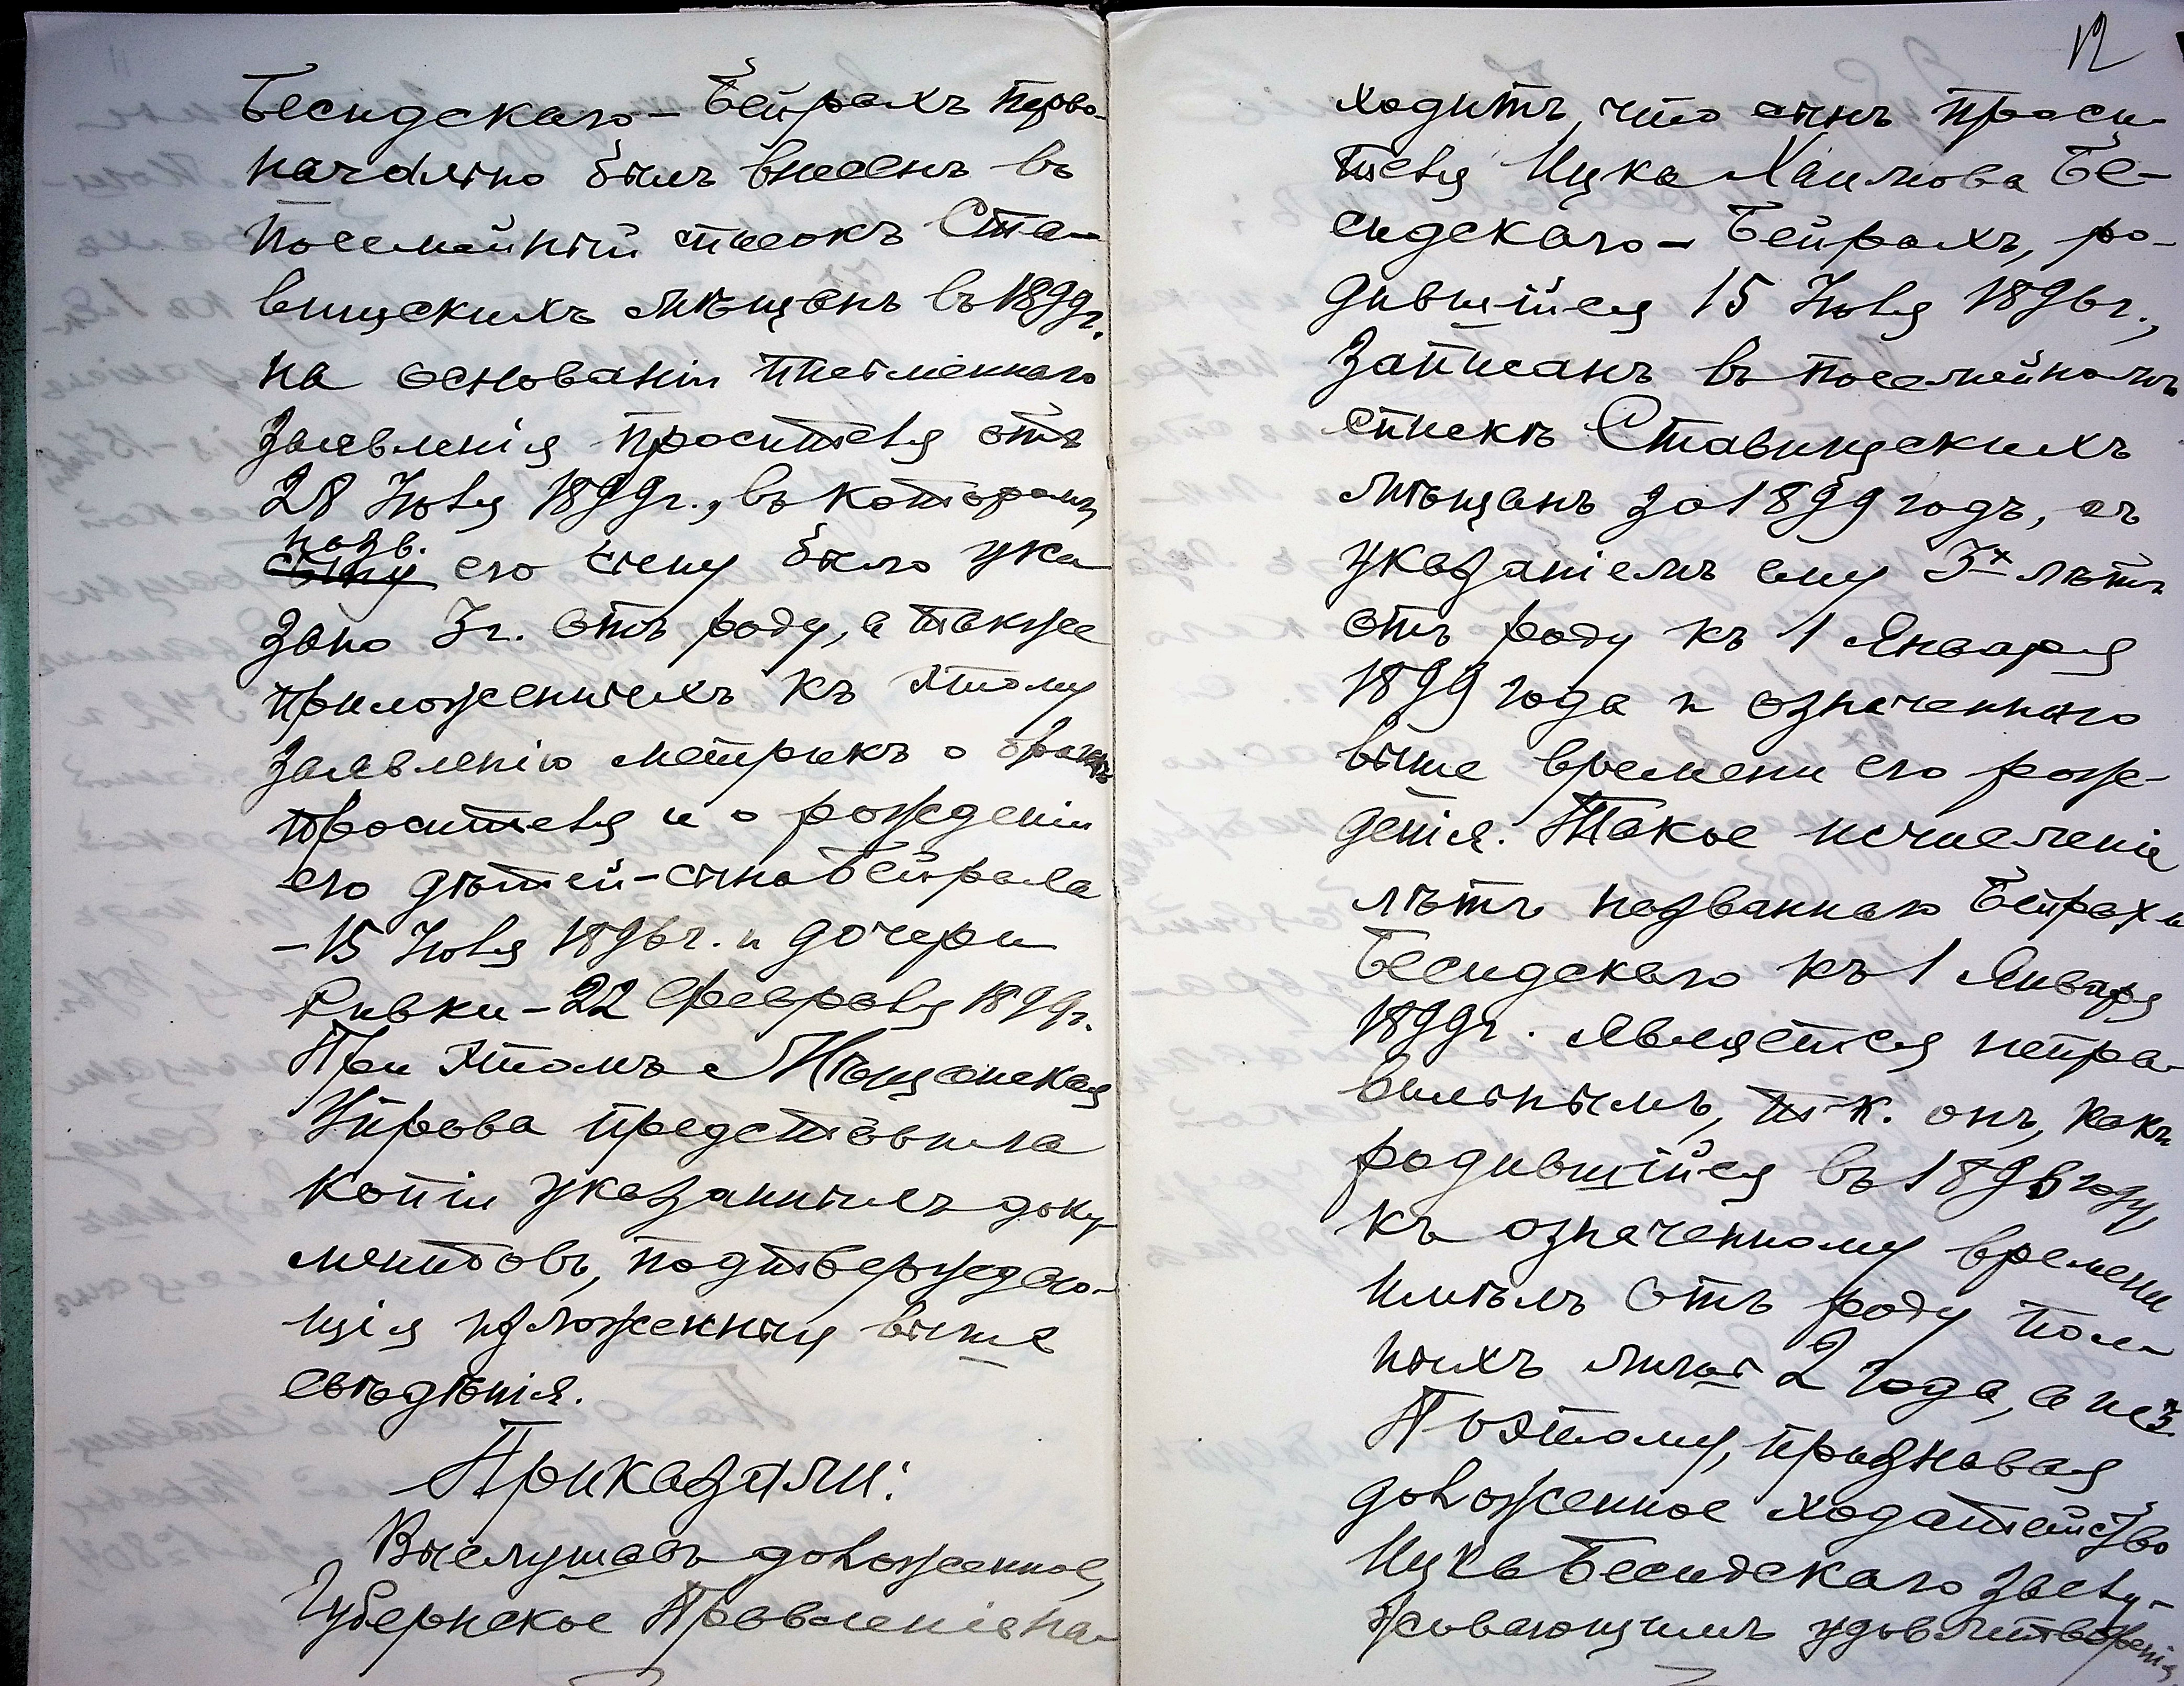 Бесидскаго - Бейрахъ перво-
начально былъ внесенъ въ
посемейный списокъ Ста-
вищскихъ мѣщанъ въ 1899г.
на основаніи письменнаго
заявленія просителя отъ
28 Іюля 1899г., въ которомъ
назв.
сыну его сыну было ука
зано 3г. отъ роду, а также
приложенныхъ къ этому
заявленію метрикъ о бракѣ
просителя и о рожденіи
его дѣтей - сына Бейраха
- 15 Іюля 1896г. и дочери
Ривки - 22 Февраля 1899г.
При этомъ Мѣщанская
Управа представила
копіи указанныхъ доку-
ментовъ, подтверждаю-
щія изложенныя выше
свѣдѣнія.
Приказали:
Выслушавъ доложенное,
Губернское Правленіе на-
12
ходитъ, что сынъ проси-
теля Ицка Хаимова Бе-
сидскаго - Бейрахъ, ро-
дившійся 15 Іюля 1896г.,
записанъ въ посемейномъ
спискѣ Ставищскихъ
мѣщанъ за 1899 годъ, съ
указаніемъ ему 3х лѣтъ
отъ роду къ 1 Января
1899 года и означеннаго
выше времени его рож-
денія. Такое исчисленіе
лѣтъ названнаго Бейраха
Бесидскаго къ 1 Января
1899г. является непра-
вильнымъ, т.к. онъ, какъ
родившійся въ 1896 году,
къ означенному времени
имѣлъ отъ роду пол-
ныхъ лишь 2 года, а не 3.
Поэтому, признавая
доложенное ходатайство
Ицка Бесидскаго заслу-
живающимъ удовлетворенія,